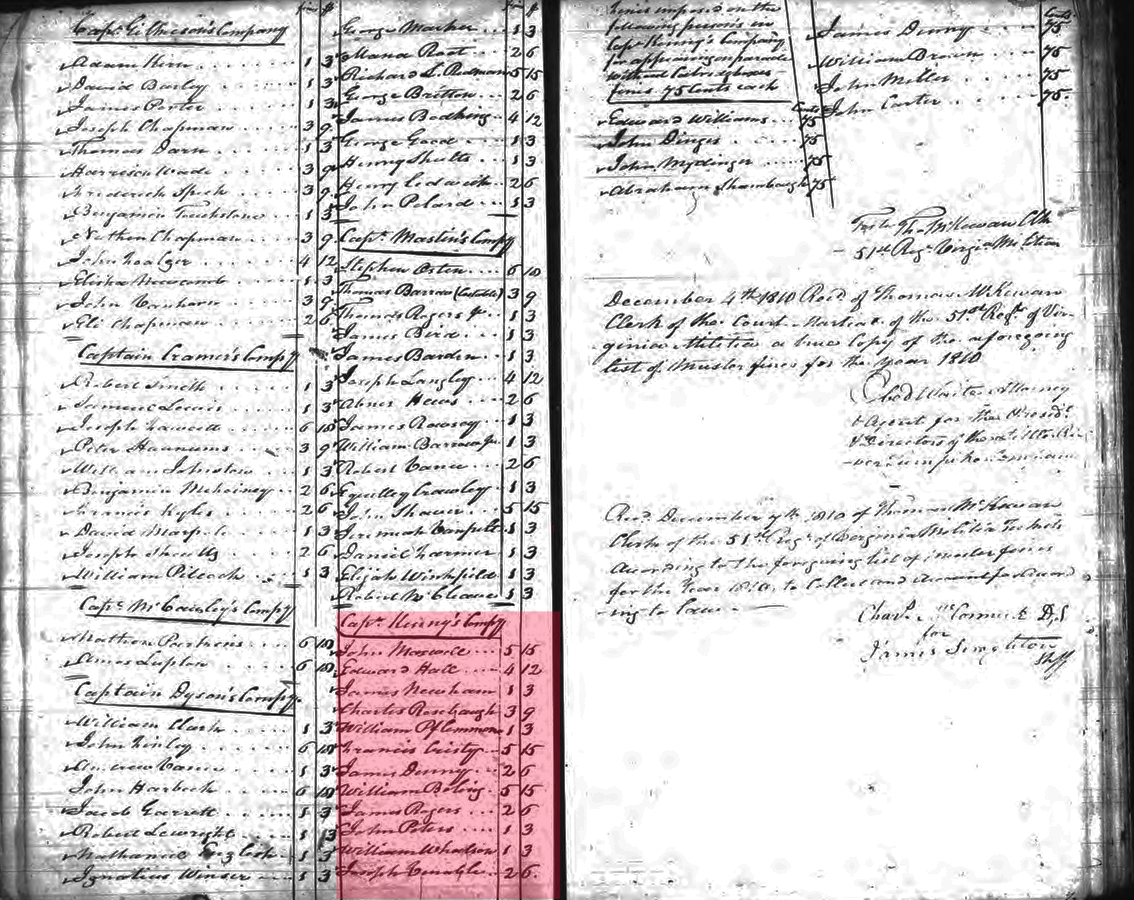 Capt. Gilkeson's Company
Adam Kern 1 3
David Barley 1 3
James Porter 1 3
Joseph Chapman 3 9
Thomas Darn 1 3
Harrison Wade 3 9
Frederick Speck 3 9
Benjamin Touchstone 1 3
Nathan Chapman 3 9
John 4 12
Elisha Newcomb 1 3
John Vanhorn 3 9
Eli Chapman 2 6
Captain Cramer's Compy
Robert Smith 1 3
Samuel Lewis 1 3
Joseph Fawcett 6 18
Peter Hannums 3 9
William Johnston 1 3
Benjamin Mchoiney 2 6
Francis Kyles 2 6
David 1 3
Joseph 2 6
William Pilcock 1 3
Capt. McCawley's Compy
Nathan Parkins 6 18
Amos Lupton 6 18
Captain Dyson's Compy
William Clark 1 3
John Finley 6 18
Andrew Vance 1 3
John Harbock 6 18
Jacob Garrett 1 3
Robert Lewright 1 3
Nathaniel English 1 3
Ignatius Winser 1 3
George Marker 1 3
Mana Root 2 6
Richard L. Redman 5 15
George Britton 2 6
James Bodkins 4 12
George Good 1 3
Henry Shults 1 3
Henry Ledwich 2 6
John Pelard 1 3
Capt. Maslin's Compy
Stephen Osten 6 18
Thomas Barrow 3 9
Thomas Rogers Jr. 1 3
James Bird 1 3
James Barden 1 3
Joseph Langley 4 12
Abner Hews 2 6
James Rowsey 1 3
William Barrow Jr. 1 3
Robert Vance 2 6
Equilley Crawley 1 3
John Shaver 5 15
Jeremiah 1 3
Daniel Farmer 1 3
Elijah Winkfield 1 3
Robert McCleave 1 3
Capt. Kinny's Compy
John Maxwell 5 15
Edward Hall 4 12
James Newham 1 3
Charles Rosebaugh 3 9
William 1 3
Francis Cristy 5 15
James Denny 2 6
William Boling 5 15
James Rogers 2 6
John Peters 1 3
William Whodson 1 3
Joseph Venable 2 6
fines imposed on the
following persons in
Capt. Kinny's Company
for appearing on parade
without Cartridgboxes
fines 75 Cents each
Cents
Edward Williams 75
John Dinges 75
John Mydinger 75
Abraham Shambaugh 75
Cents
James Denny 75
William Brown 75
John Miller 75
John Carter 75
Teste Tho. McKewan Clk
51st Regt. Virginia Militia
December 4th 1810 Recd of Thomas McKewan
Clerk of the Court Martial of the 51st Regt of Vir-
ginia Militia a true Copy of the aforegoing
list of Muster fines for the year 1810
Obed Waite Attorney
& Agent for the Presidt.
& Directors of the
Recd. December 7th 1810 of Thomas McKewan
Clerk of the 51st Regt of Virginia Militia Tickets
According to the foregoing list of muster fines
for the Year 1810, to Collect and Account for Accord
ing to Law
Charl. McCormick D,S
for
James Singleton
Shff